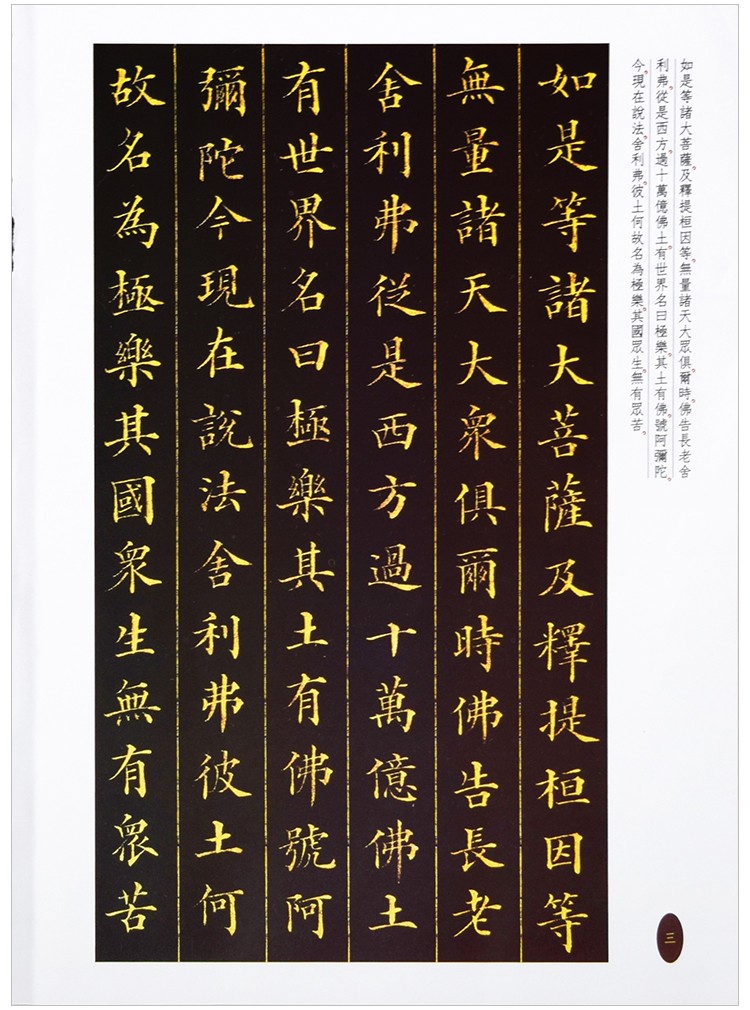 如是等諸大菩薩。及釋提桓因等。無量諸天大眾俱。爾時。佛告長老舍
利弗。從是西方。過十萬億佛土。有世界名曰極樂。其土有佛。號阿彌陀。
今現在說法。舍利弗。彼土何故名為極樂。其國眾生。無有眾苦。
如是等諸大菩薩及釋提桓因等
無量諸天大衆俱爾時佛告長老
舍利弗從是西方過十萬億佛土
有世界名曰極樂其土有佛號阿
彌陀今現在說法舍利弗彼土何
故名為極樂其國衆生無有眾苦
三